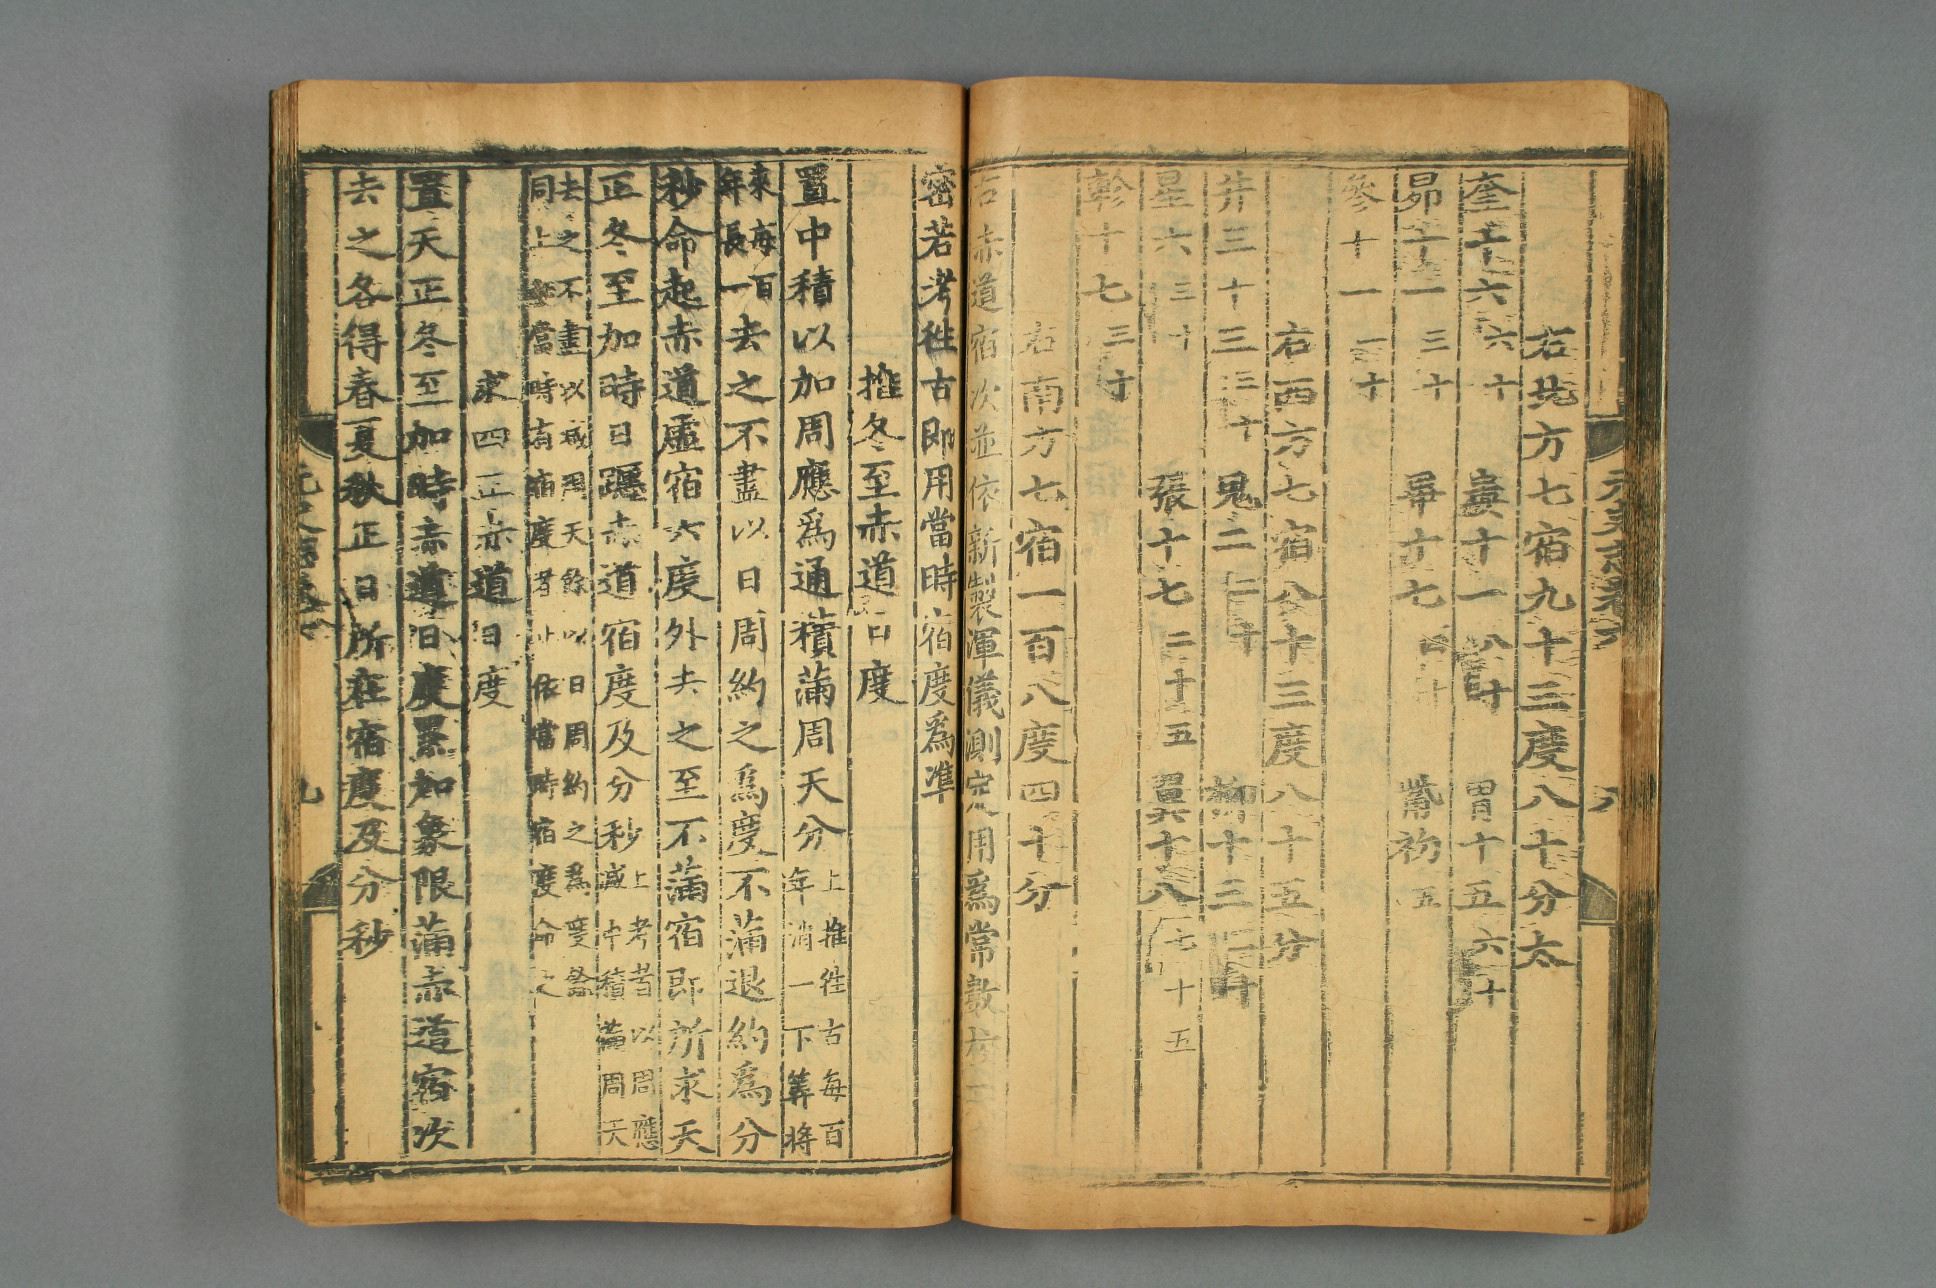 右北方七宿九十三度八十分太
奎十六六十 婁十一八十 胃十五六十
昴十一三十 畢十七四十 觜初五
參十一一十
右西方七宿八十三度八十五分
井三十三三十 鬼二二十 柳十三三十
星六三十 張十七二十五 翼十八七十五
軫十七三十
右南方七宿一百八度四十分
右赤道宿次並依新製渾儀測定用爲常數校天
密若考徃古即用當時宿度爲準
推冬至赤道日度
置中積以加周應爲通積滿周天分上推徃古每百年消一下筭將
來每百年長一去之不盡以日周約之爲度不滿退約爲分
秒命起赤道虛宿六度外去之至不滿宿即所求天
正冬至加時日躔赤道宿度及分秒上考者以周應減中積滿周天
去之不盡以减周天餘以日周約之爲度餘同上如當時有宿度者止依當時宿度命之
求四正赤道日度
置天正冬至加時赤道日度累加象限滿赤道宿次
去之各得春夏秋正日所在宿度及分秒
元史志卷六
九